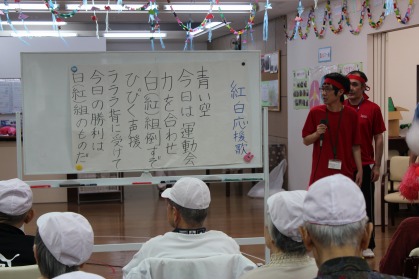 紅白応援歌
青い空
今日は運動会
力を合わせ
白(紅)組倒すぞ
ひびく声援
ラララ背に受けて
今日の勝利は
白(紅)組のものだ